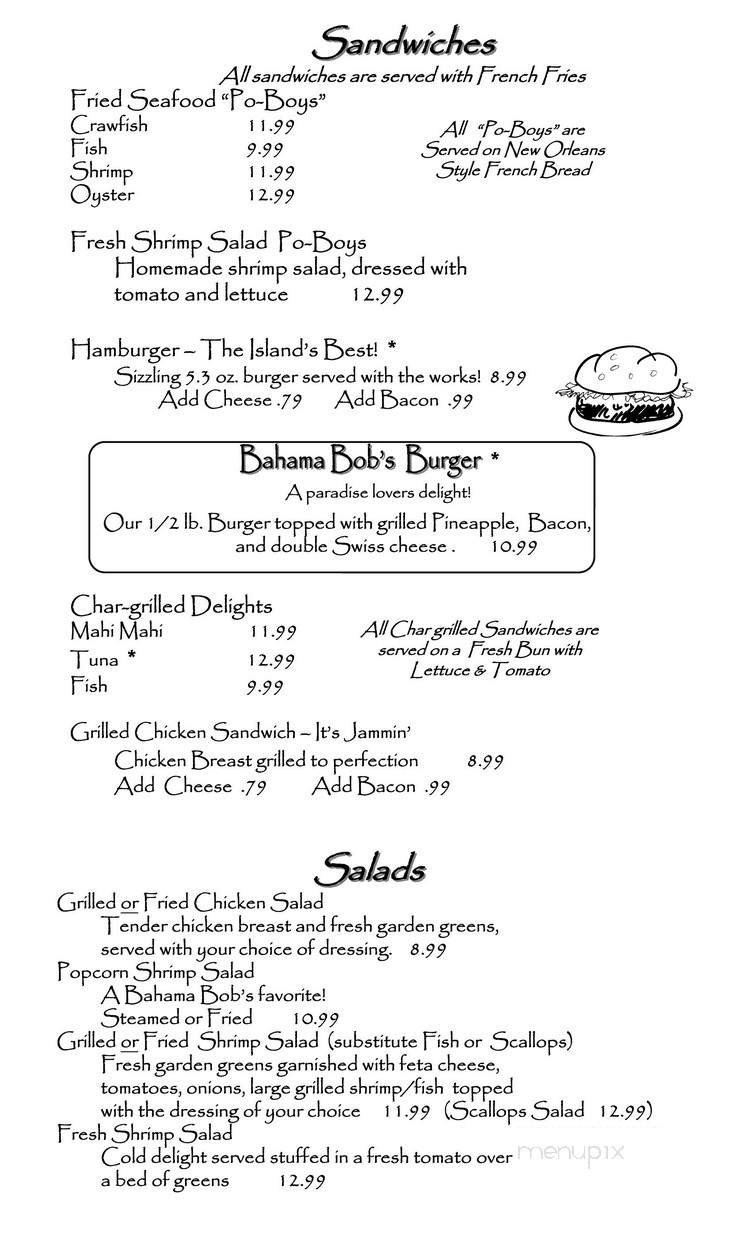 Sandwiches
All sandwiches are served with French Fries
Fried Seafood “Po-Boys”
Crawfish 11.99
Fish 9.99
Shrimp 11.99
Oyster 12.99
All “Po-Boys” are
Served on New Orleans
Style French Bread
Fresh Shrimp Salad Po-Boys
Homemade shrimp salad, dressed with
tomato and lettuce 12.99
Hamburger – The Island’s Best! *
Sizzling 5.3 oz. burger served with the works! 8.99
Add Cheese .79 Add Bacon .99
Bahama Bob’s Burger *
A paradise lovers delight!
Our 1/2 lb. Burger topped with grilled Pineapple, Bacon,
and double Swiss cheese . 10.99
Char-grilled Delights
Mahi Mahi 11.99
Tuna * 12.99
Fish 9.99
All Char grilled Sandwiches are
served on a Fresh Bun with
Lettuce & Tomato
Grilled Chicken Sandwich – It’s Jammin’
Chicken Breast grilled to perfection 8.99
Add Cheese .79 Add Bacon .99
Salads
Grilled or Fried Chicken Salad
Tender chicken breast and fresh garden greens,
served with your choice of dressing. 8.99
Popcorn Shrimp Salad
A Bahama Bob’s favorite!
Steamed or Fried 10.99
Grilled or Fried Shrimp Salad (substitute Fish or Scallops)
Fresh garden greens garnished with feta cheese,
tomatoes, onions, large grilled shrimp/fish topped
with the dressing of your choice 11.99 (Scallops Salad 12.99)
Fresh Shrimp Salad
Cold delight served stuffed in a fresh tomato over
a bed of greens 12.99
menupix